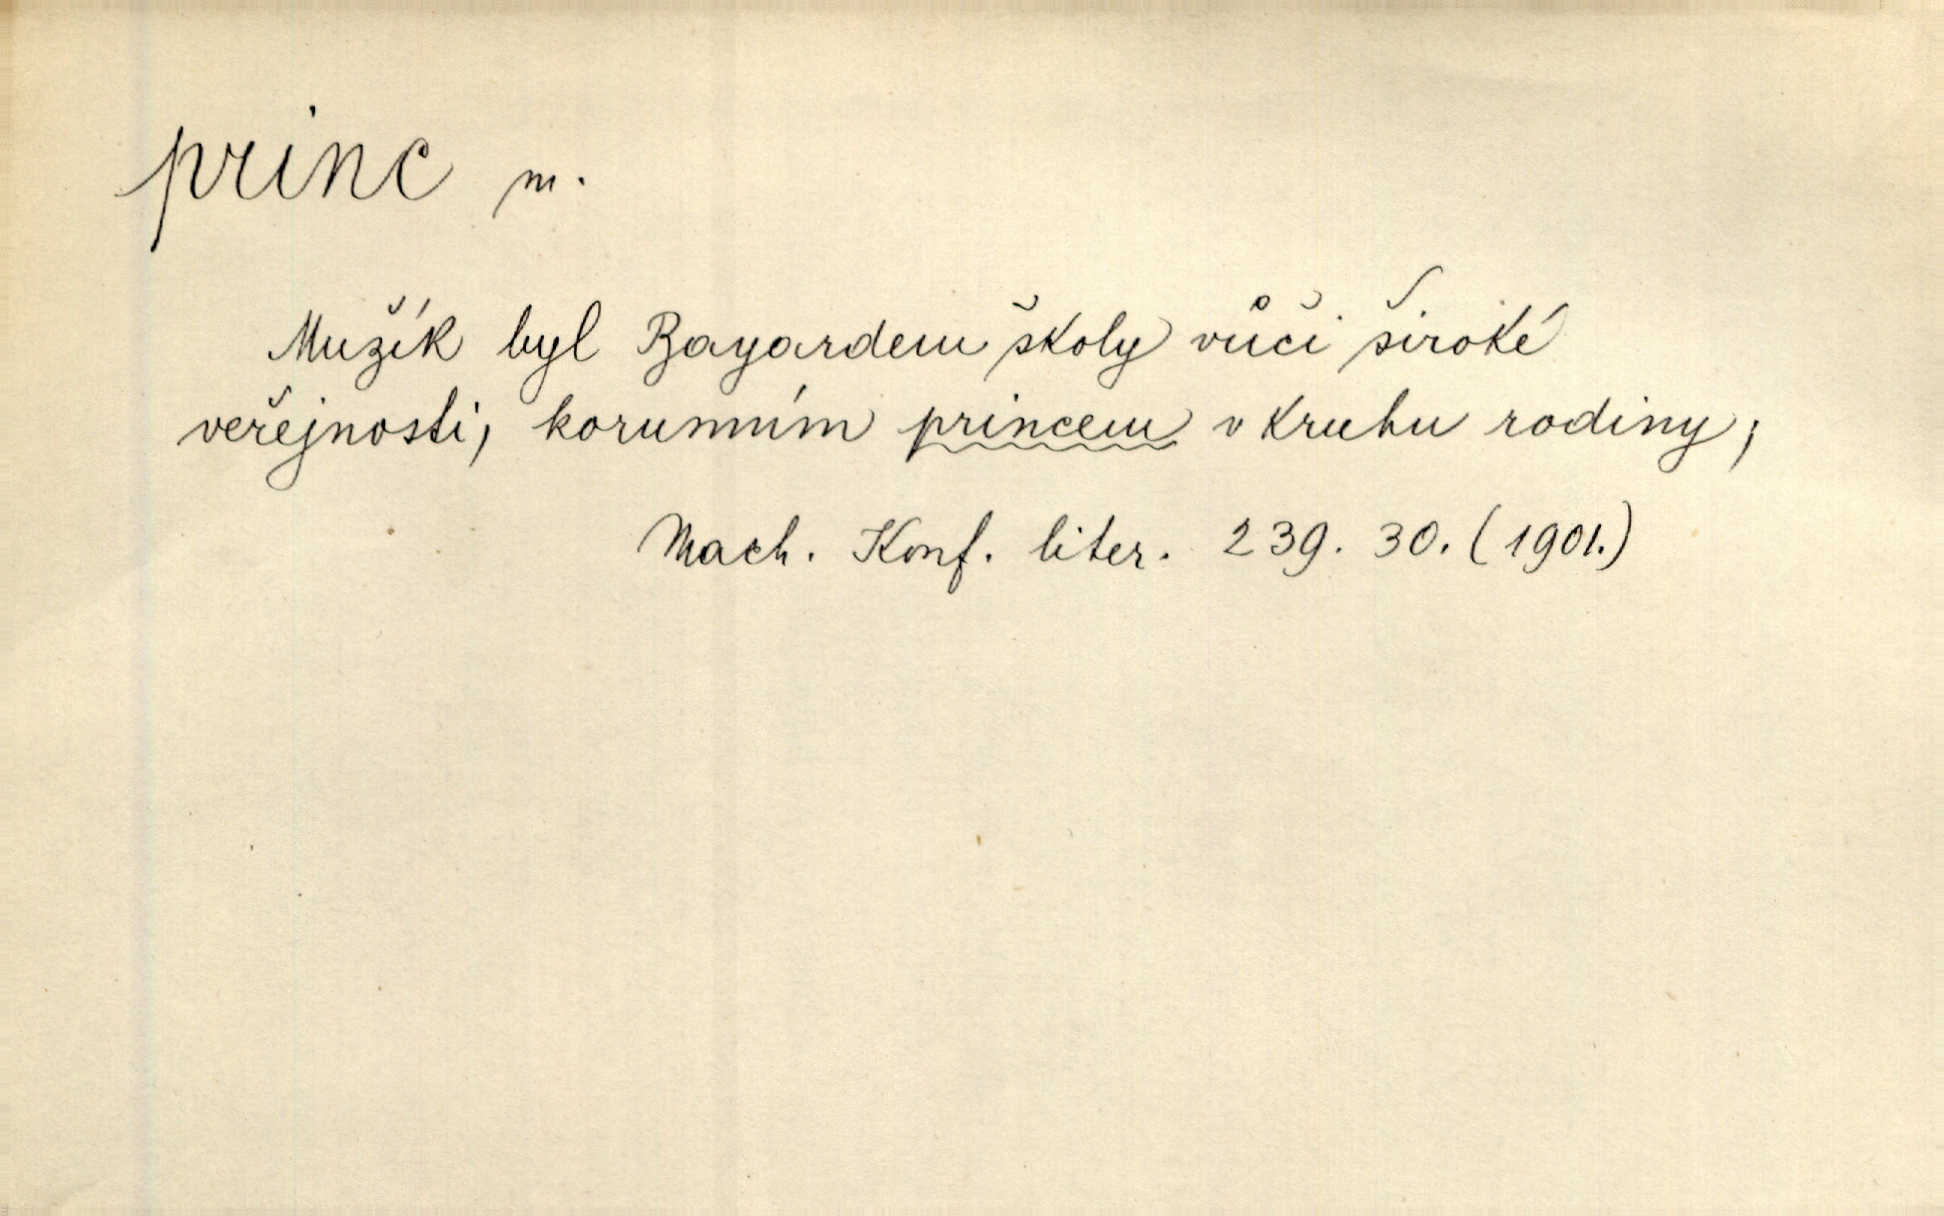 princ m.
Mužík byl Bayardem školy vůči široké
veřejnosti, korunním princem v kruhu rodiny;
Mach. Konf. liter. 239. 30. (1901.)